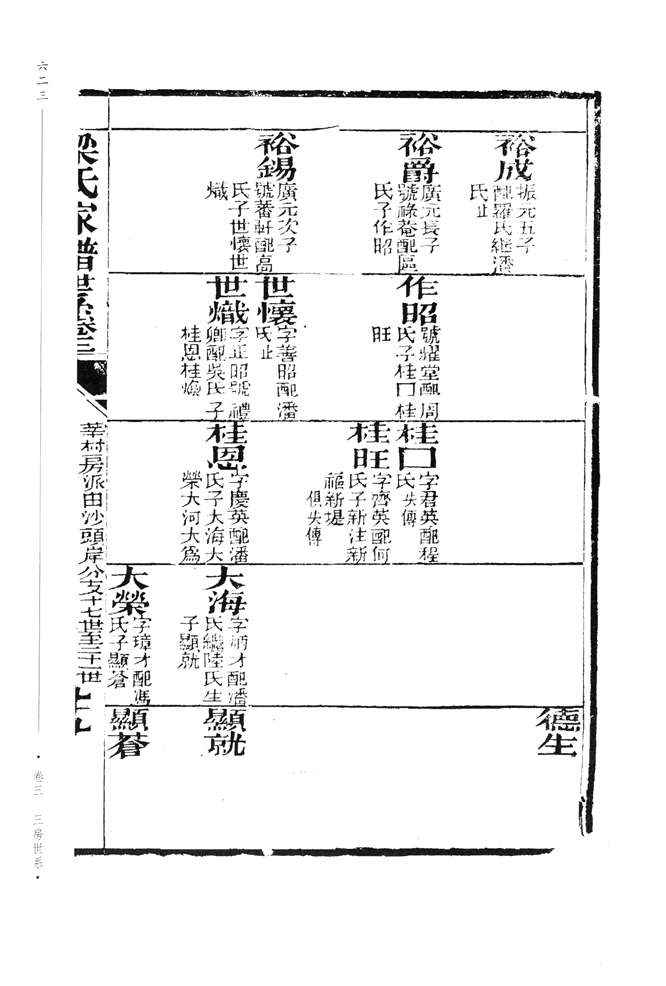 裕成
振元五子
配羅氏繼潘
氏止
裕爵
廣元長子
號祿菴配區
氏子作昭
裕錫
廣元次子
號蕃軒配高
氏子世懷世
熾
作昭
號耀堂配周
氏子桂口桂
旺
世懷
字善昭配潘
氏止
世熾
字正昭號禮
卿配吳氏子
桂恩桂煥
桂口
字君英配程
氏失傳
桂旺
字齊英配何
氏子新注新
福新堤
俱失傳
桂恩
字慶英配潘
氏子大海大
榮大河大為
大海
字炳才配潘
氏繼陸氏生
子顯就
大榮
字璋才配馮
氏子顯蒼
德生
顯就
顯蒼
梁氏家譜世系卷三
莘村房派由沙頭岸分支十七世至二十一世
十九
六二三
·卷三 三房世系·